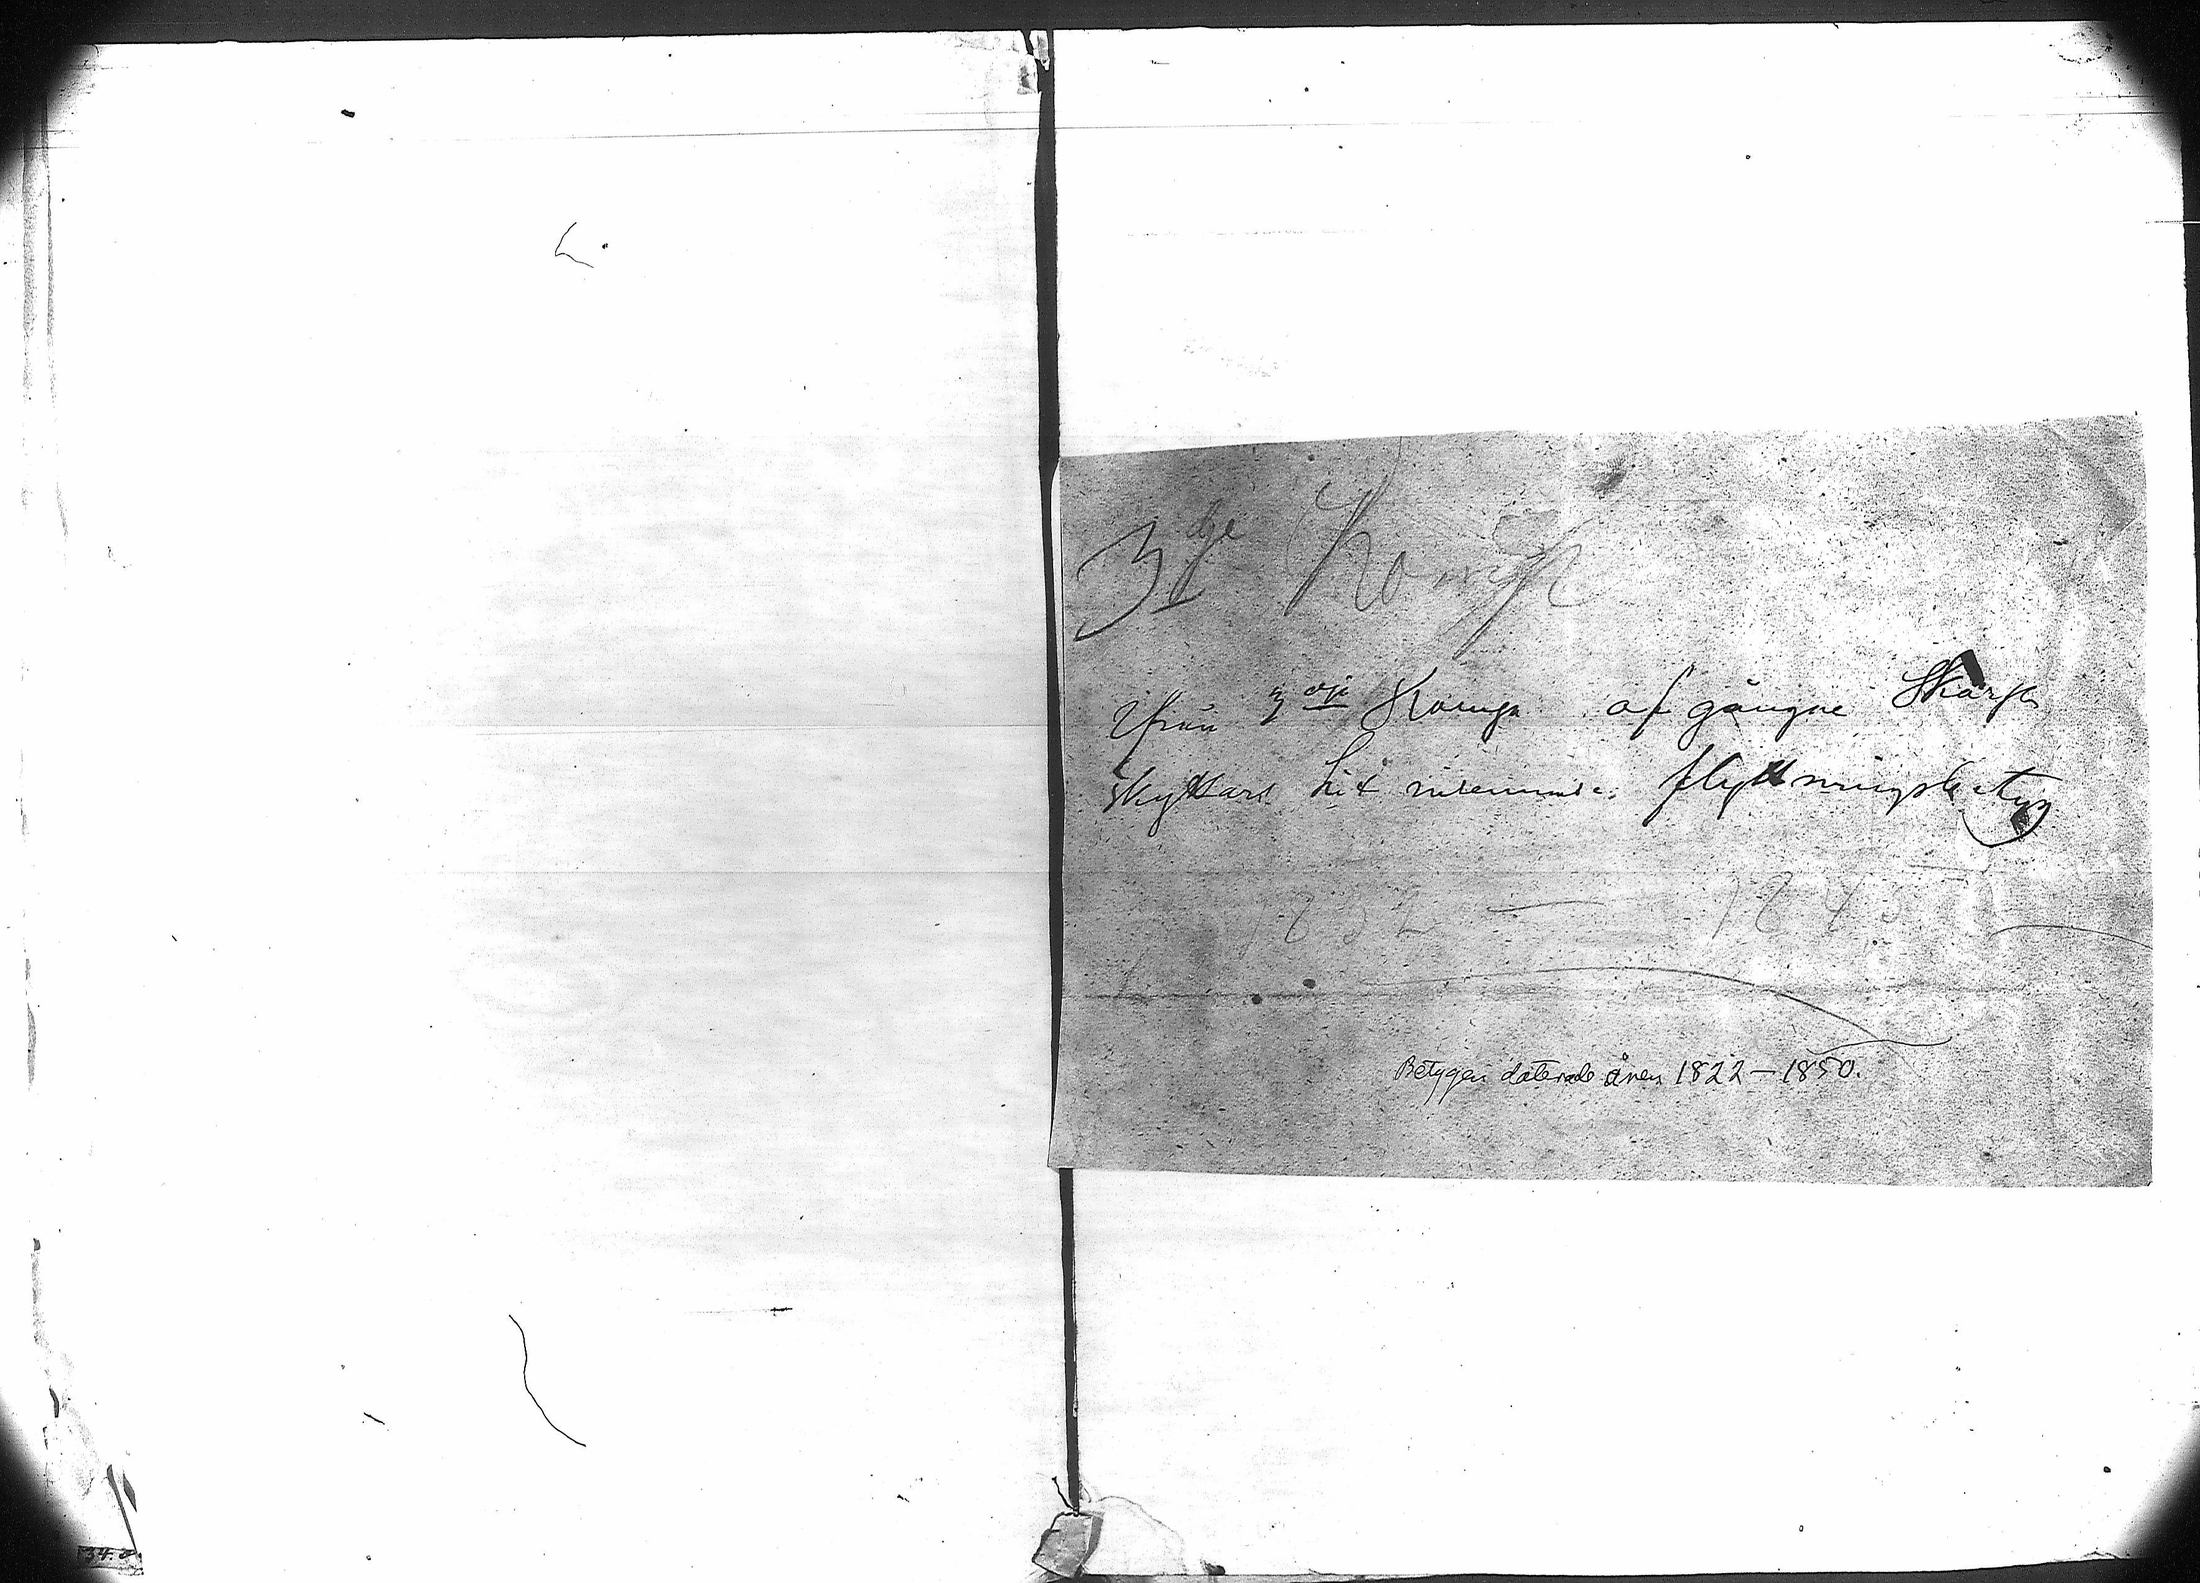 3dje Komp
ifrån 3dje Komp. afgångne Skarp
skyttars hit insemnade flyttningsbetyg
1832 — 1845
Betygen daterade åren 1822—1850.